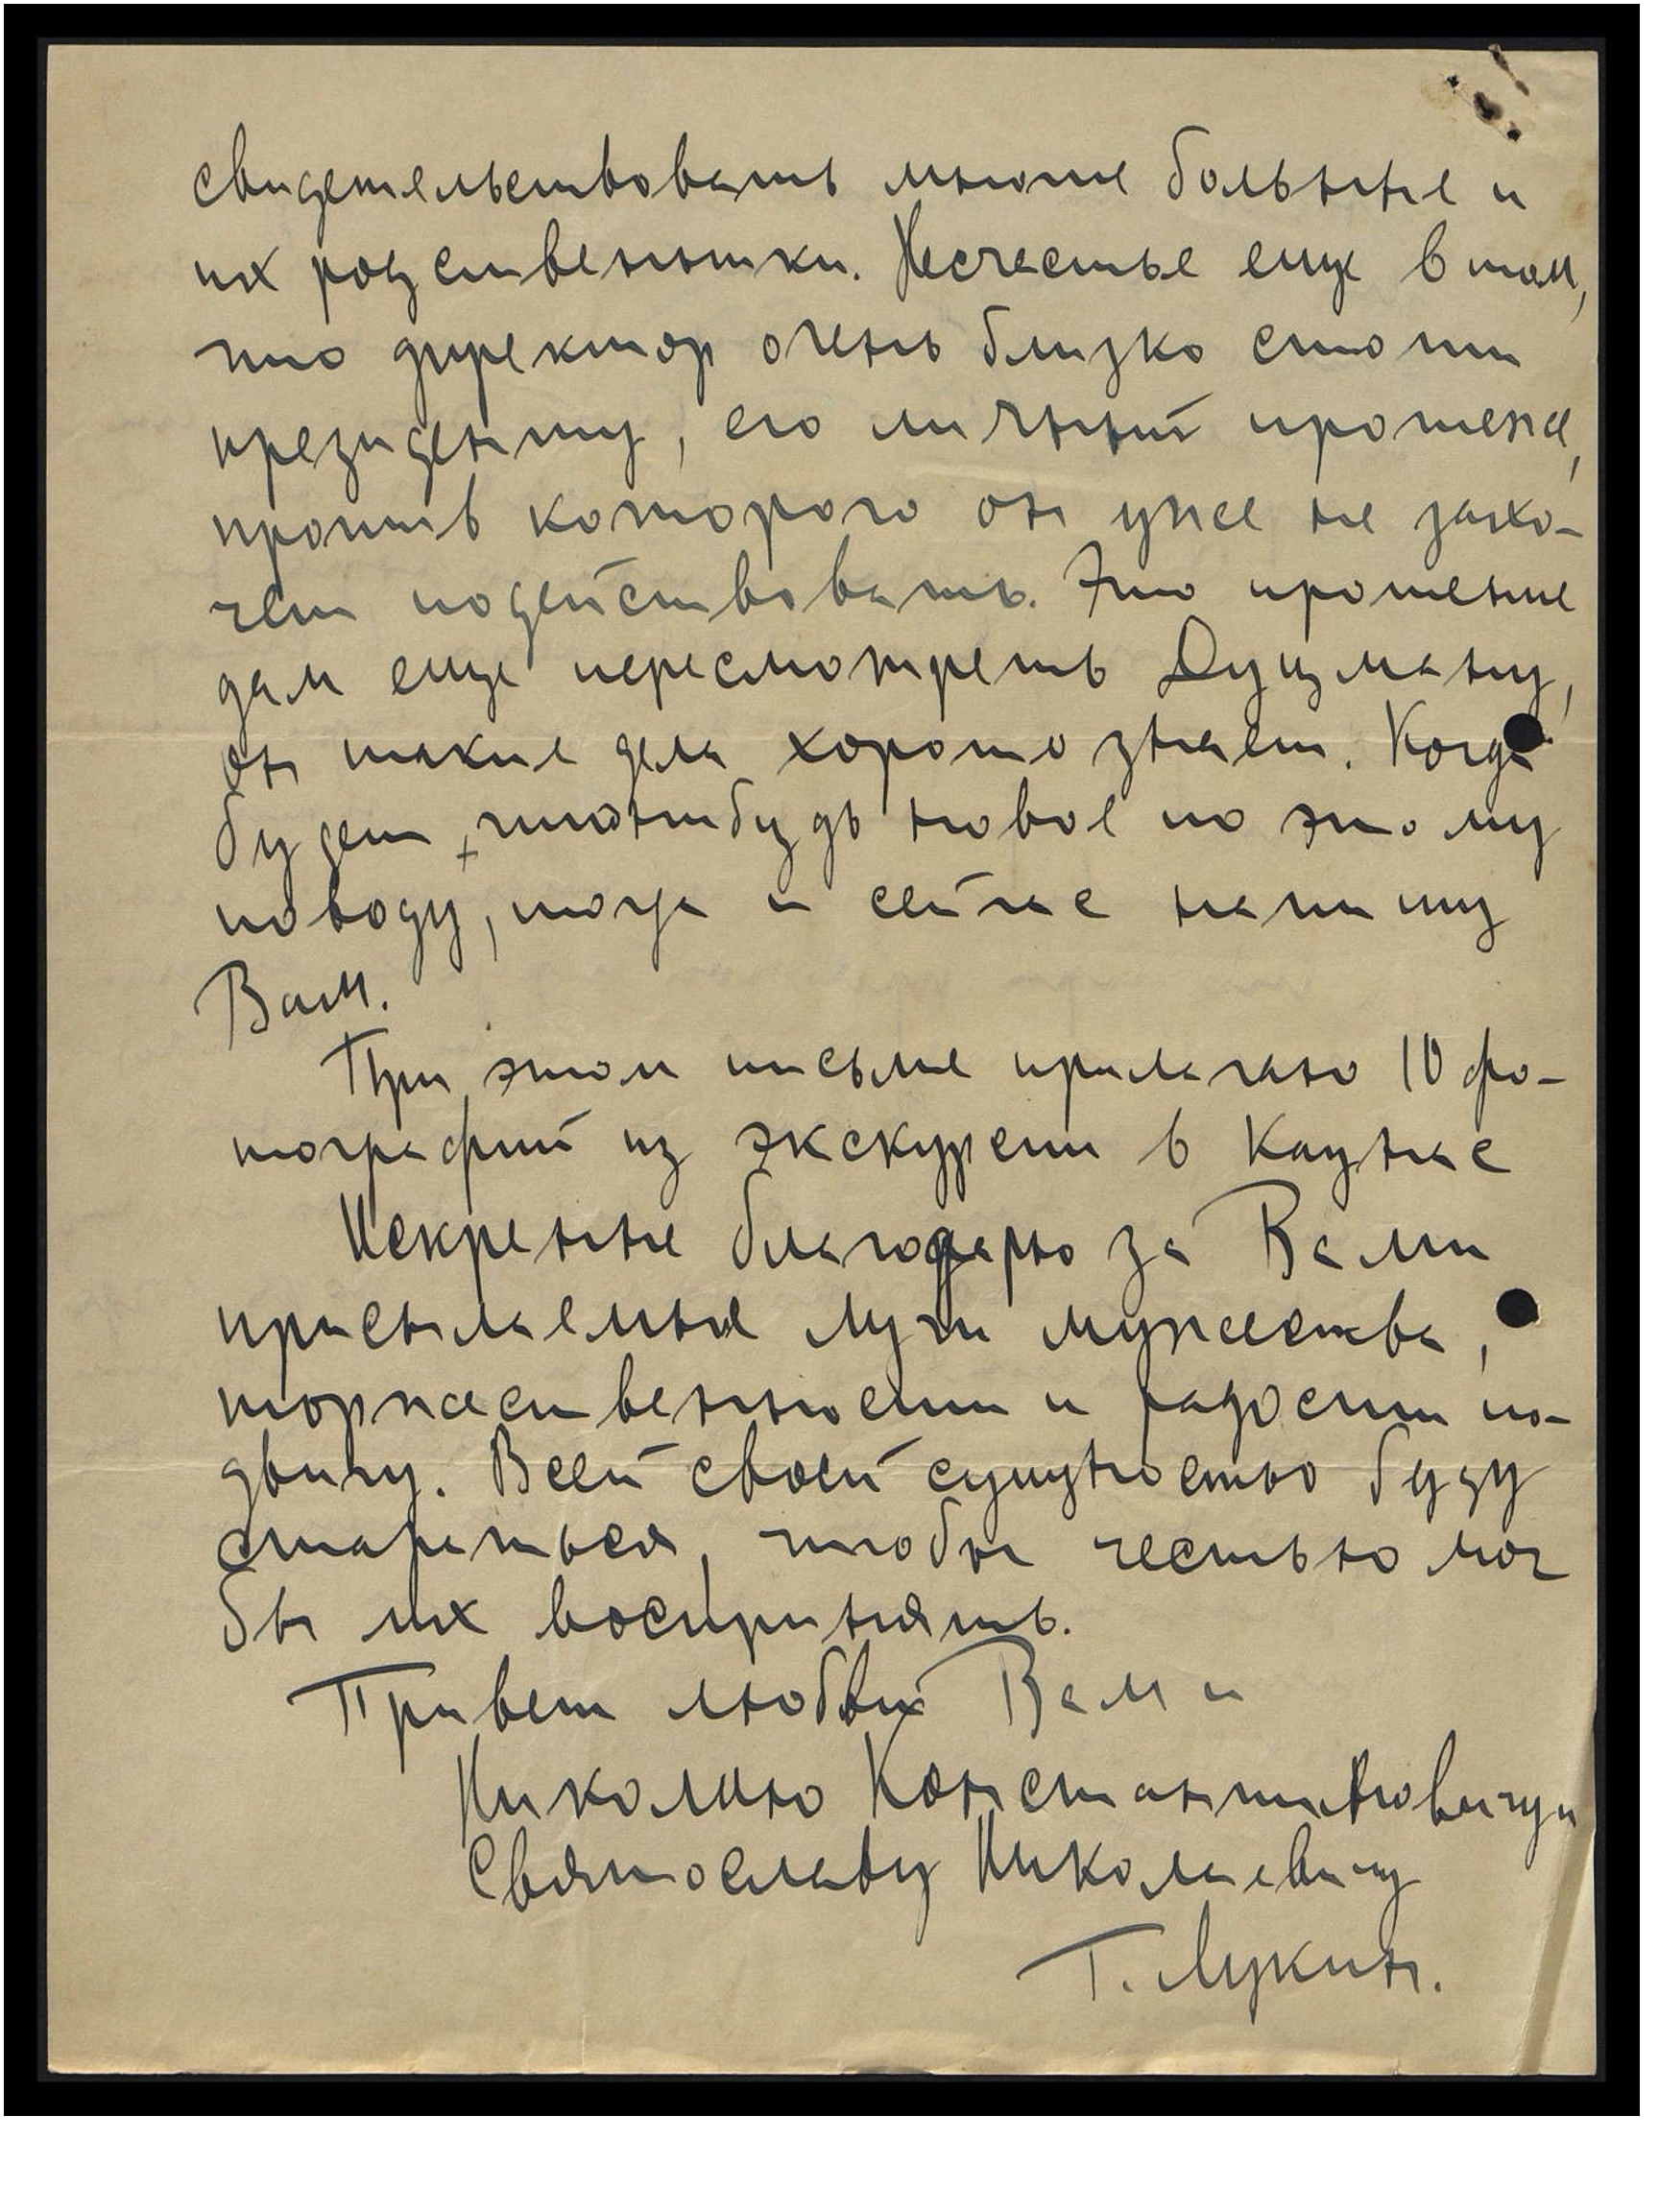 свидетельствовать многие больные и
их родственники. Несчастье еще в том,
что директор очень близко стоит
президенту, его личный протеже,
против которого он уже не захо-
чет подействовать. Это прошение
дам еще пересмотреть Дуцману,
он такие дела хорошо знает. Когда
будет что-нибудь новое по этому
поводу, тогда и сейчас напишу
Вам.
При этом письме прилагаю 10 фо-
тографий из экскурсии в Каунас
Искренне благодарю за Вами
присылаемые лучи мужества,
торжественности и радости по-
двигу. Всей своей сущностью буду
стараться, чтобы честью мог
бы их воспринять.
Привет любви Вам и
Николаю Константиновичу и
Святославу Николаевичу
Г. Лукин.